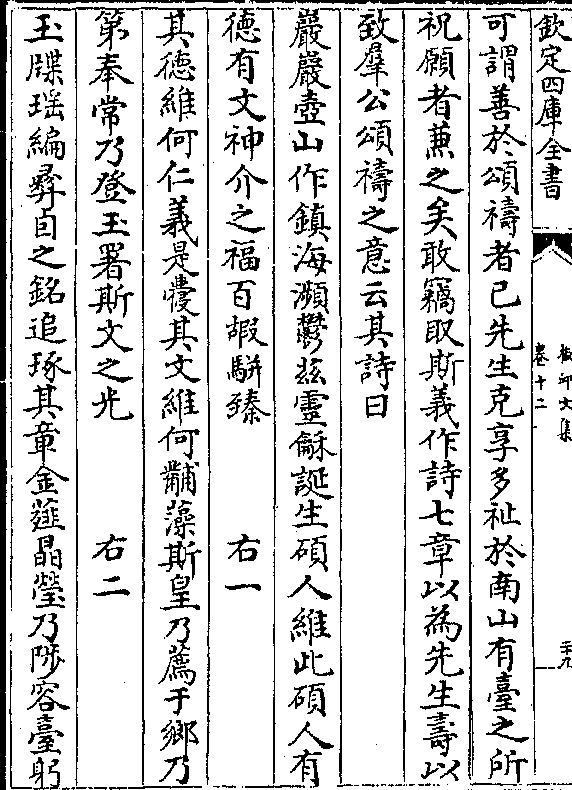 欽定四庫全書
卷十二
可謂善於頌禱者已先生克享多祉於南山有臺之所
祝願者蒹之矣敢竊取斯義作詩七章以為先生壽以
致羣公頌禱之意云其詩曰
巖巖壺山作鎮海瀕鬱兹靈龢誕生碩人維此碩人有
德有文神介之福百嘏駢臻　右一
其德維何仁義是㦸其文維何黼藻斯皇乃薦于鄉乃
第奉常乃登玉署斯文之光　右二
玉牒瑶編彞卣之銘追琢其章金薤晶瑩乃陟容臺躬